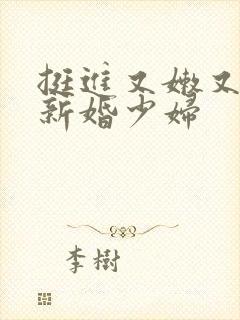 挺進又嫩又
新婚少婦
李樹